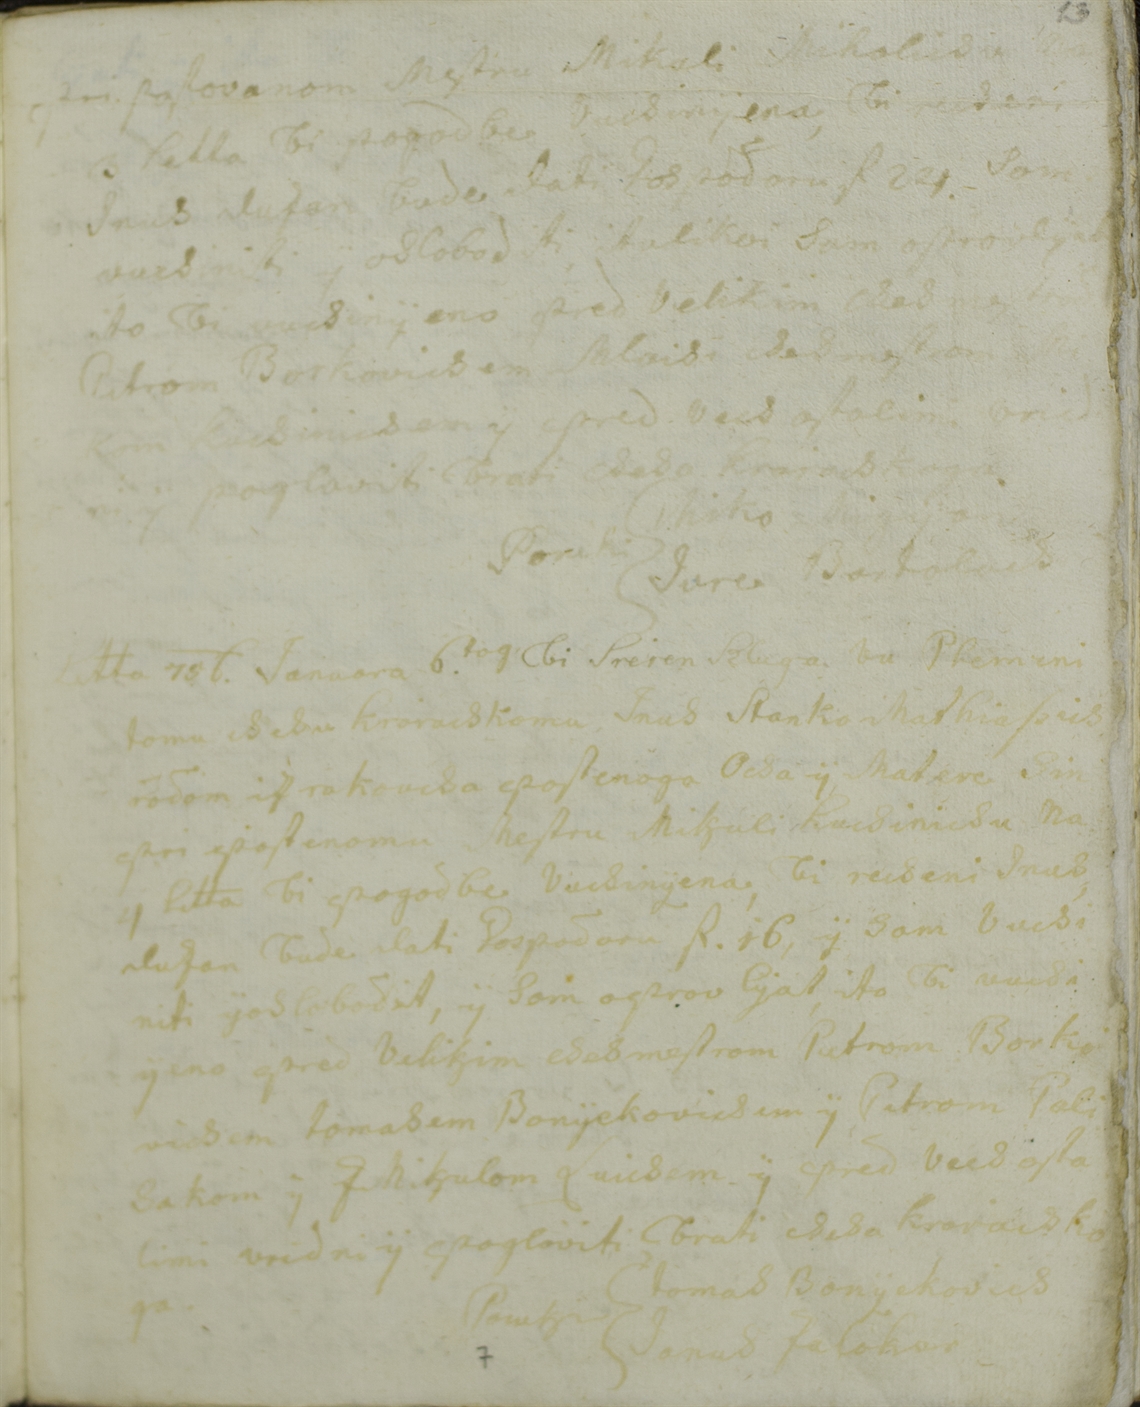 13
pri postovanom Mestru Mikoli Miholichu Na
3 Letta bi pogodbe Vuchinyena, bi recheni
Inus dusan bude dati Gospodoru f 24. Som
vuchiniti ÿ osloboditi, tulikoi Som opravlyat
ito bi vuchinÿeno pred Velikim Cheh mestrom
Petrom Borkovichem Mlaisi Chehmestrom
kuchinichem ÿ pred Vech ostalimi vrid
ni ÿ poglaviti Brati Cheha krovachkoga
Miko
Poruki Jure Bartolich
Letta 756. Januara 6.tog. bi Sreien Sluga vu Plemeni
tomu Chehu krovachkomu Inus Stanko Mathiasevich
rodom iz rakovcha postenoga Ocza ÿ Matere Sin
pri postenomu Mestru Mikuli kuchinichu Na
4 Letta bi pogodbe Vuchinÿena, bi recheni Inus
dusan bude dati Gospodoru f. 16, ÿ Som Vuchi
niti ÿ oslobodit, ÿ Som opravlyat, ito bi vuchi
ÿeno pred Velikim Chehmestrom Petrom Borko
vichem tomasem Bonÿekovichem ÿ Petrom Pali
Sakom ÿ Z Mikulom Luichem ÿ pred Vech osta
limi vridni ÿ poglaviti Brati Cheha krovachko
ga.
Poruki tomas Bonÿekovich
Janus
7